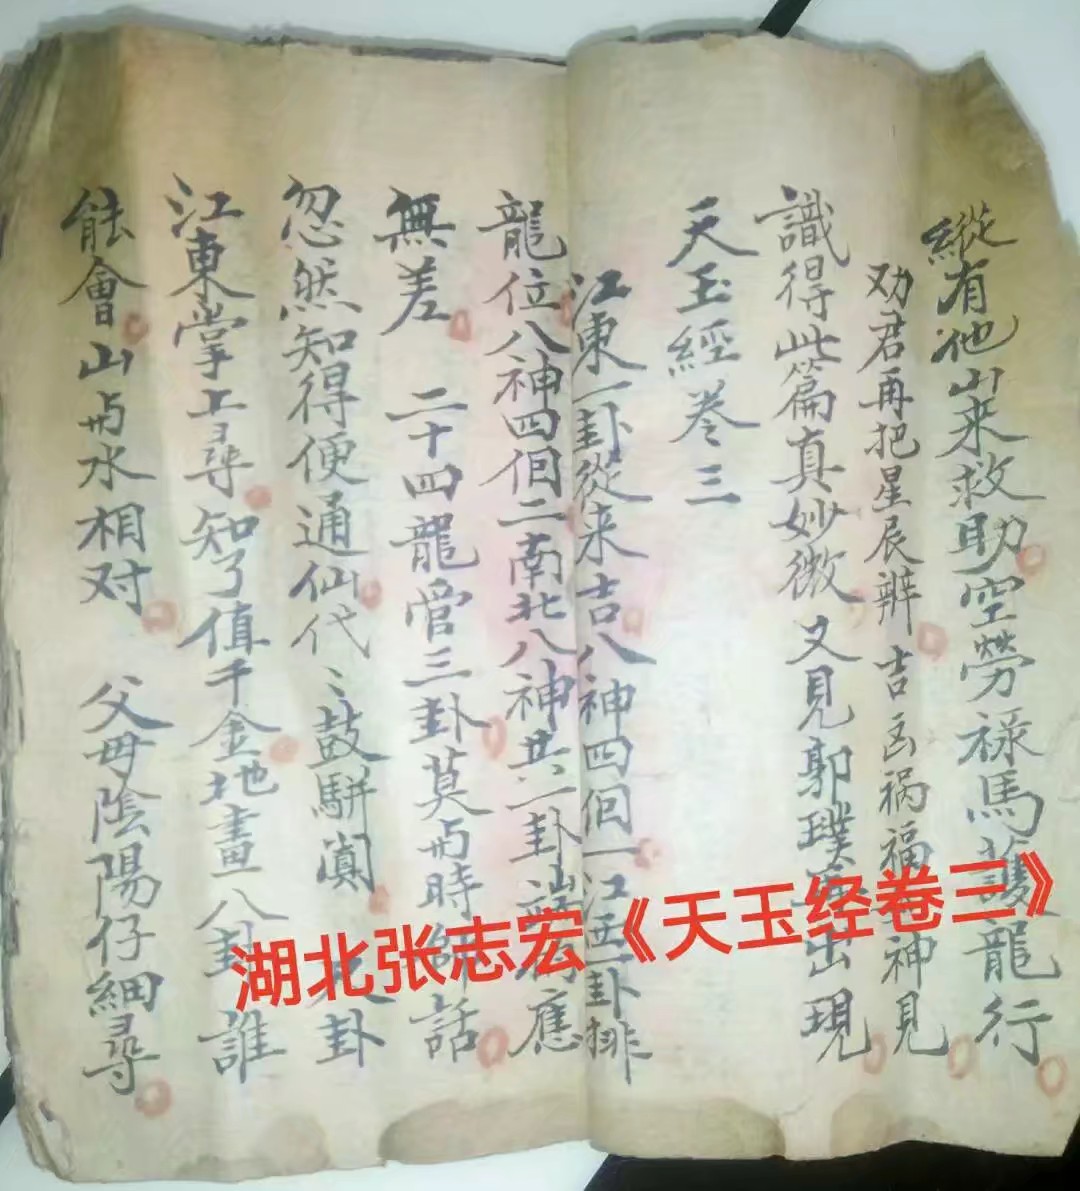 縱有他山来救助空勞禄馬護龍行
劝君再把星辰辨吉凶祸福神見
識得此篇真妙微又見郭璞出現
天玉經卷三
江東一卦從来吉八神四個一江西一卦排
龍位八神四個二南北八神共一卦應
無差 二十四龍管三卦莫与時師話
忽然知得便通仙代〻鼓駢闐 卦
江東掌上尋知了值千金地畫八卦誰
能會山与水相对 父母陰陽仔細尋
湖北张志宏《天玉经卷三》